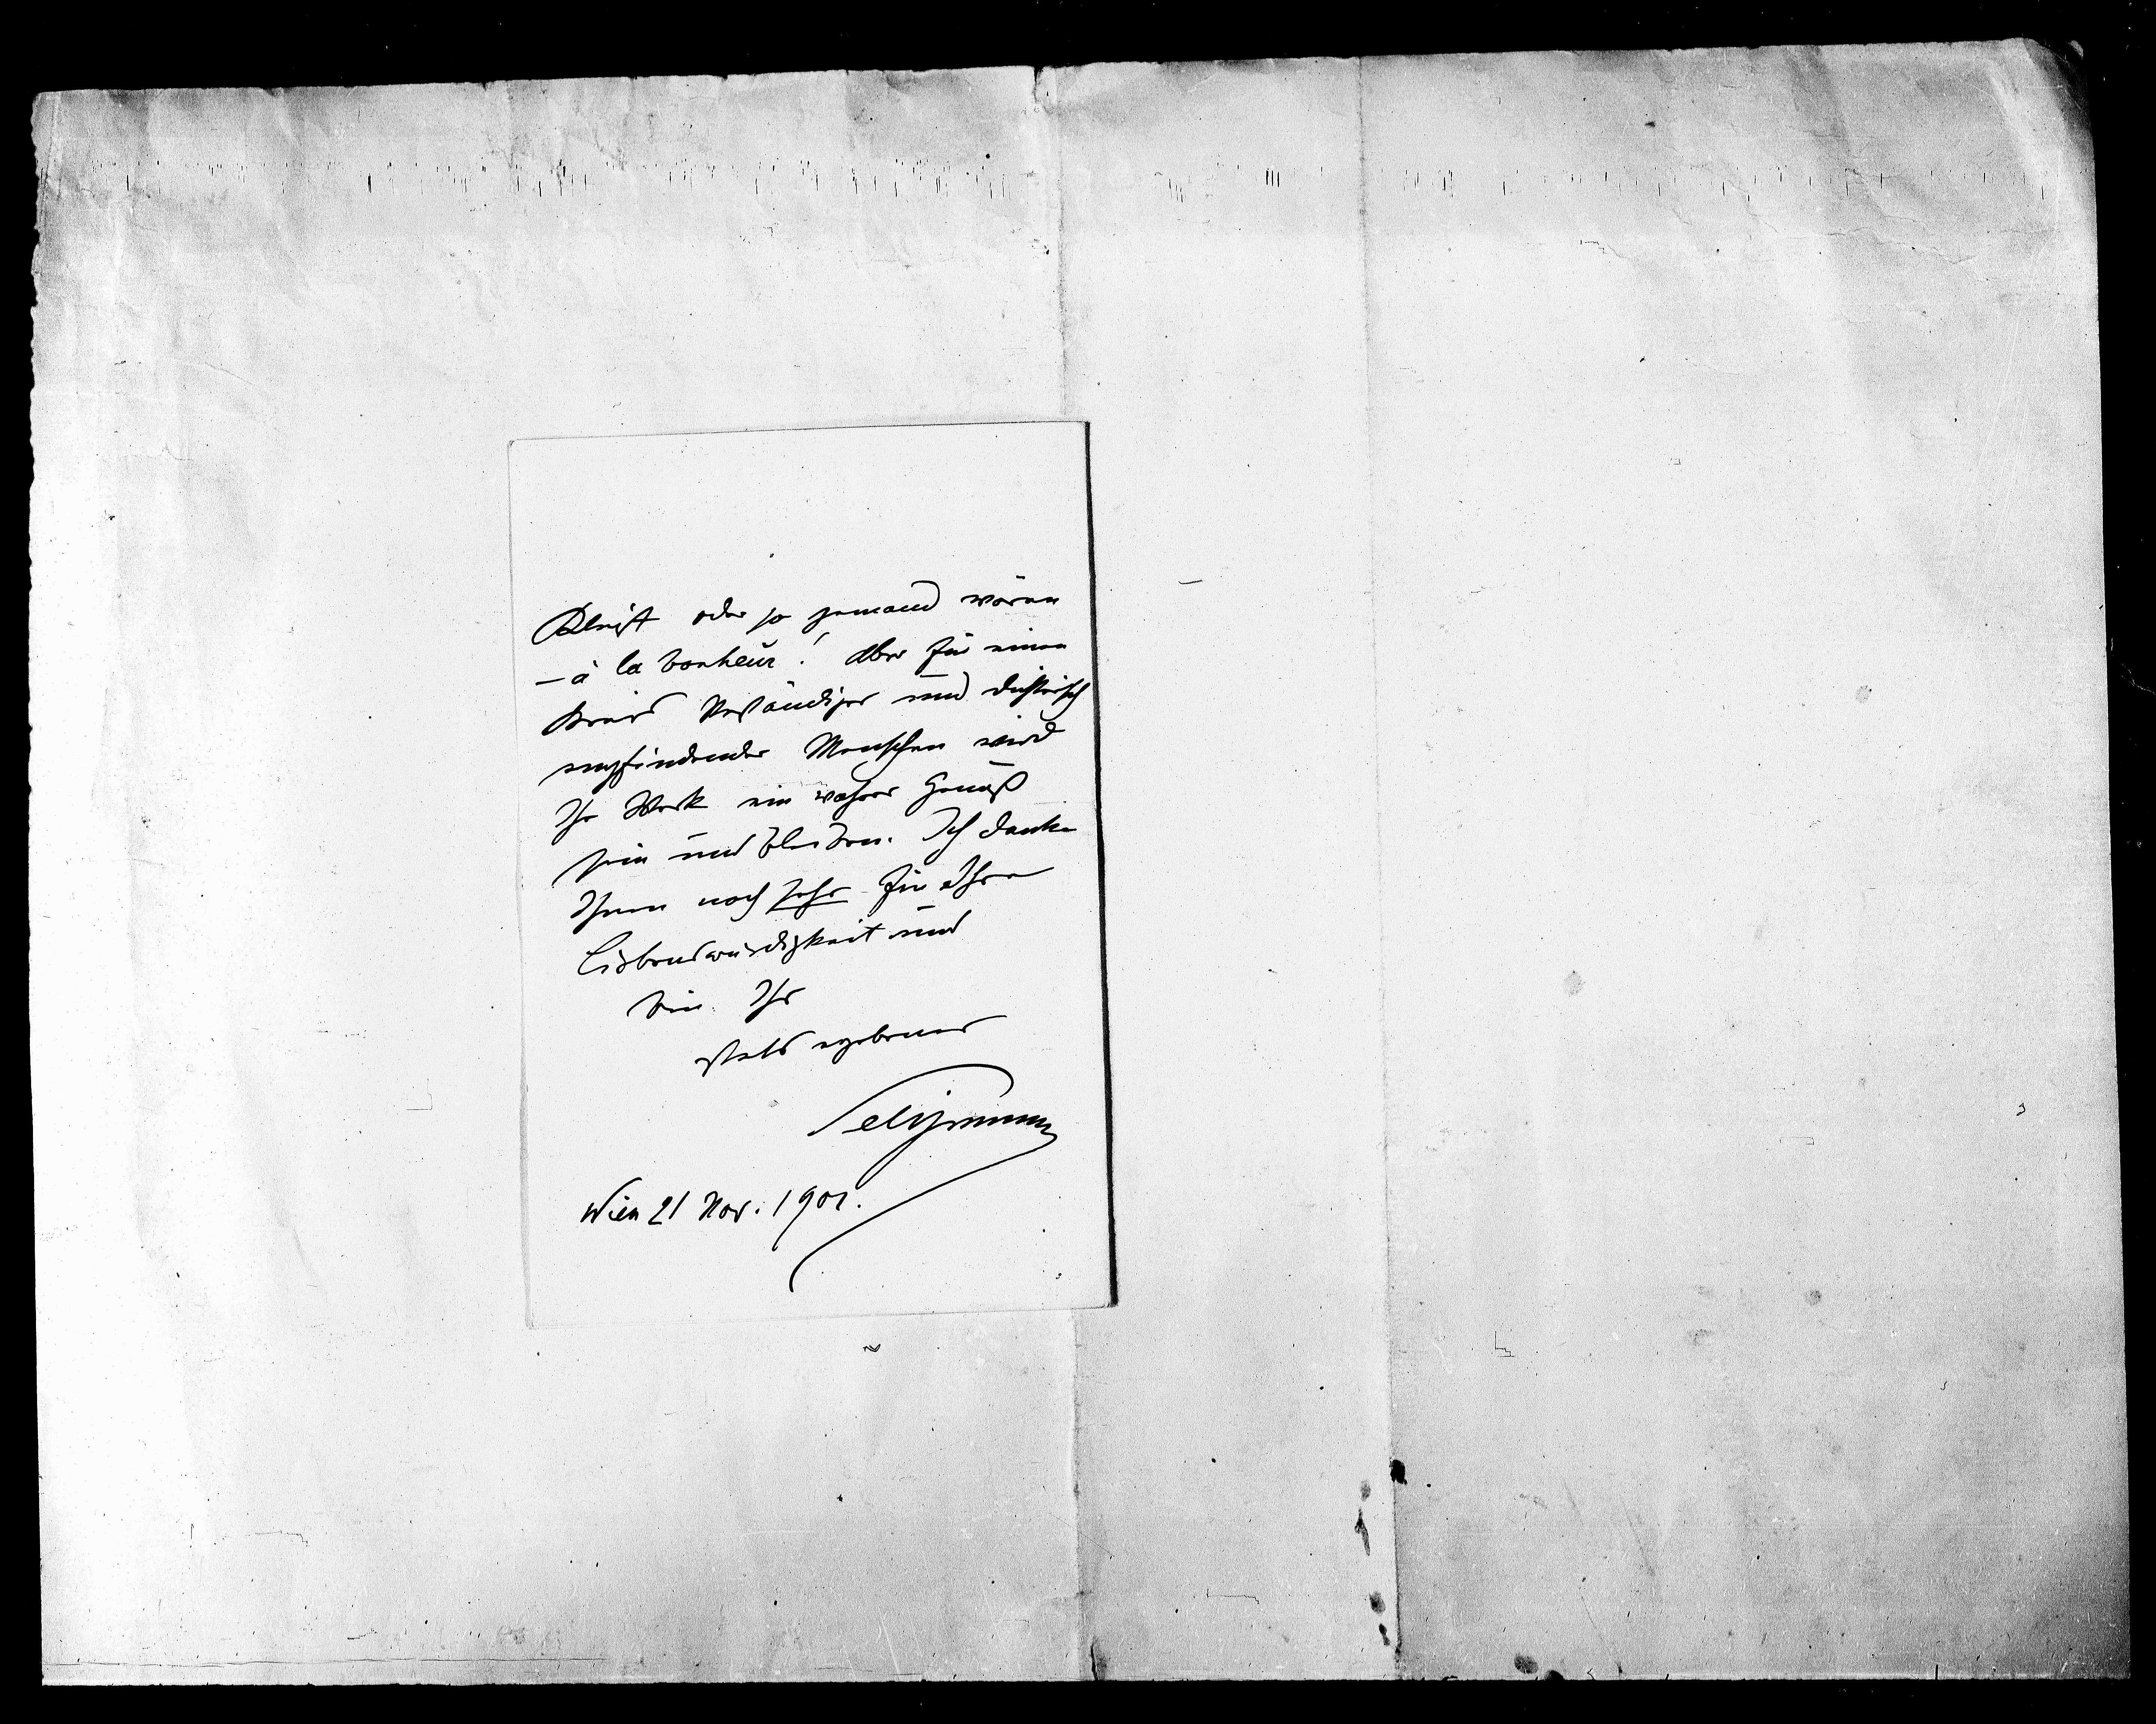 Kleist oder so jemand wären
– à la bonheur! Aber für einen
Kreis Verständiger und dichterisch
empfindender Menschen wird
Ihr Werk ein wahrer Genuß
sein und bleiben. Ich danke
Ihnen noch sehr für Ihre
Liebenswürdigkeit und
bin Ihr
stets ergebener
Seligmann
Wien 21 Nov. 1901.